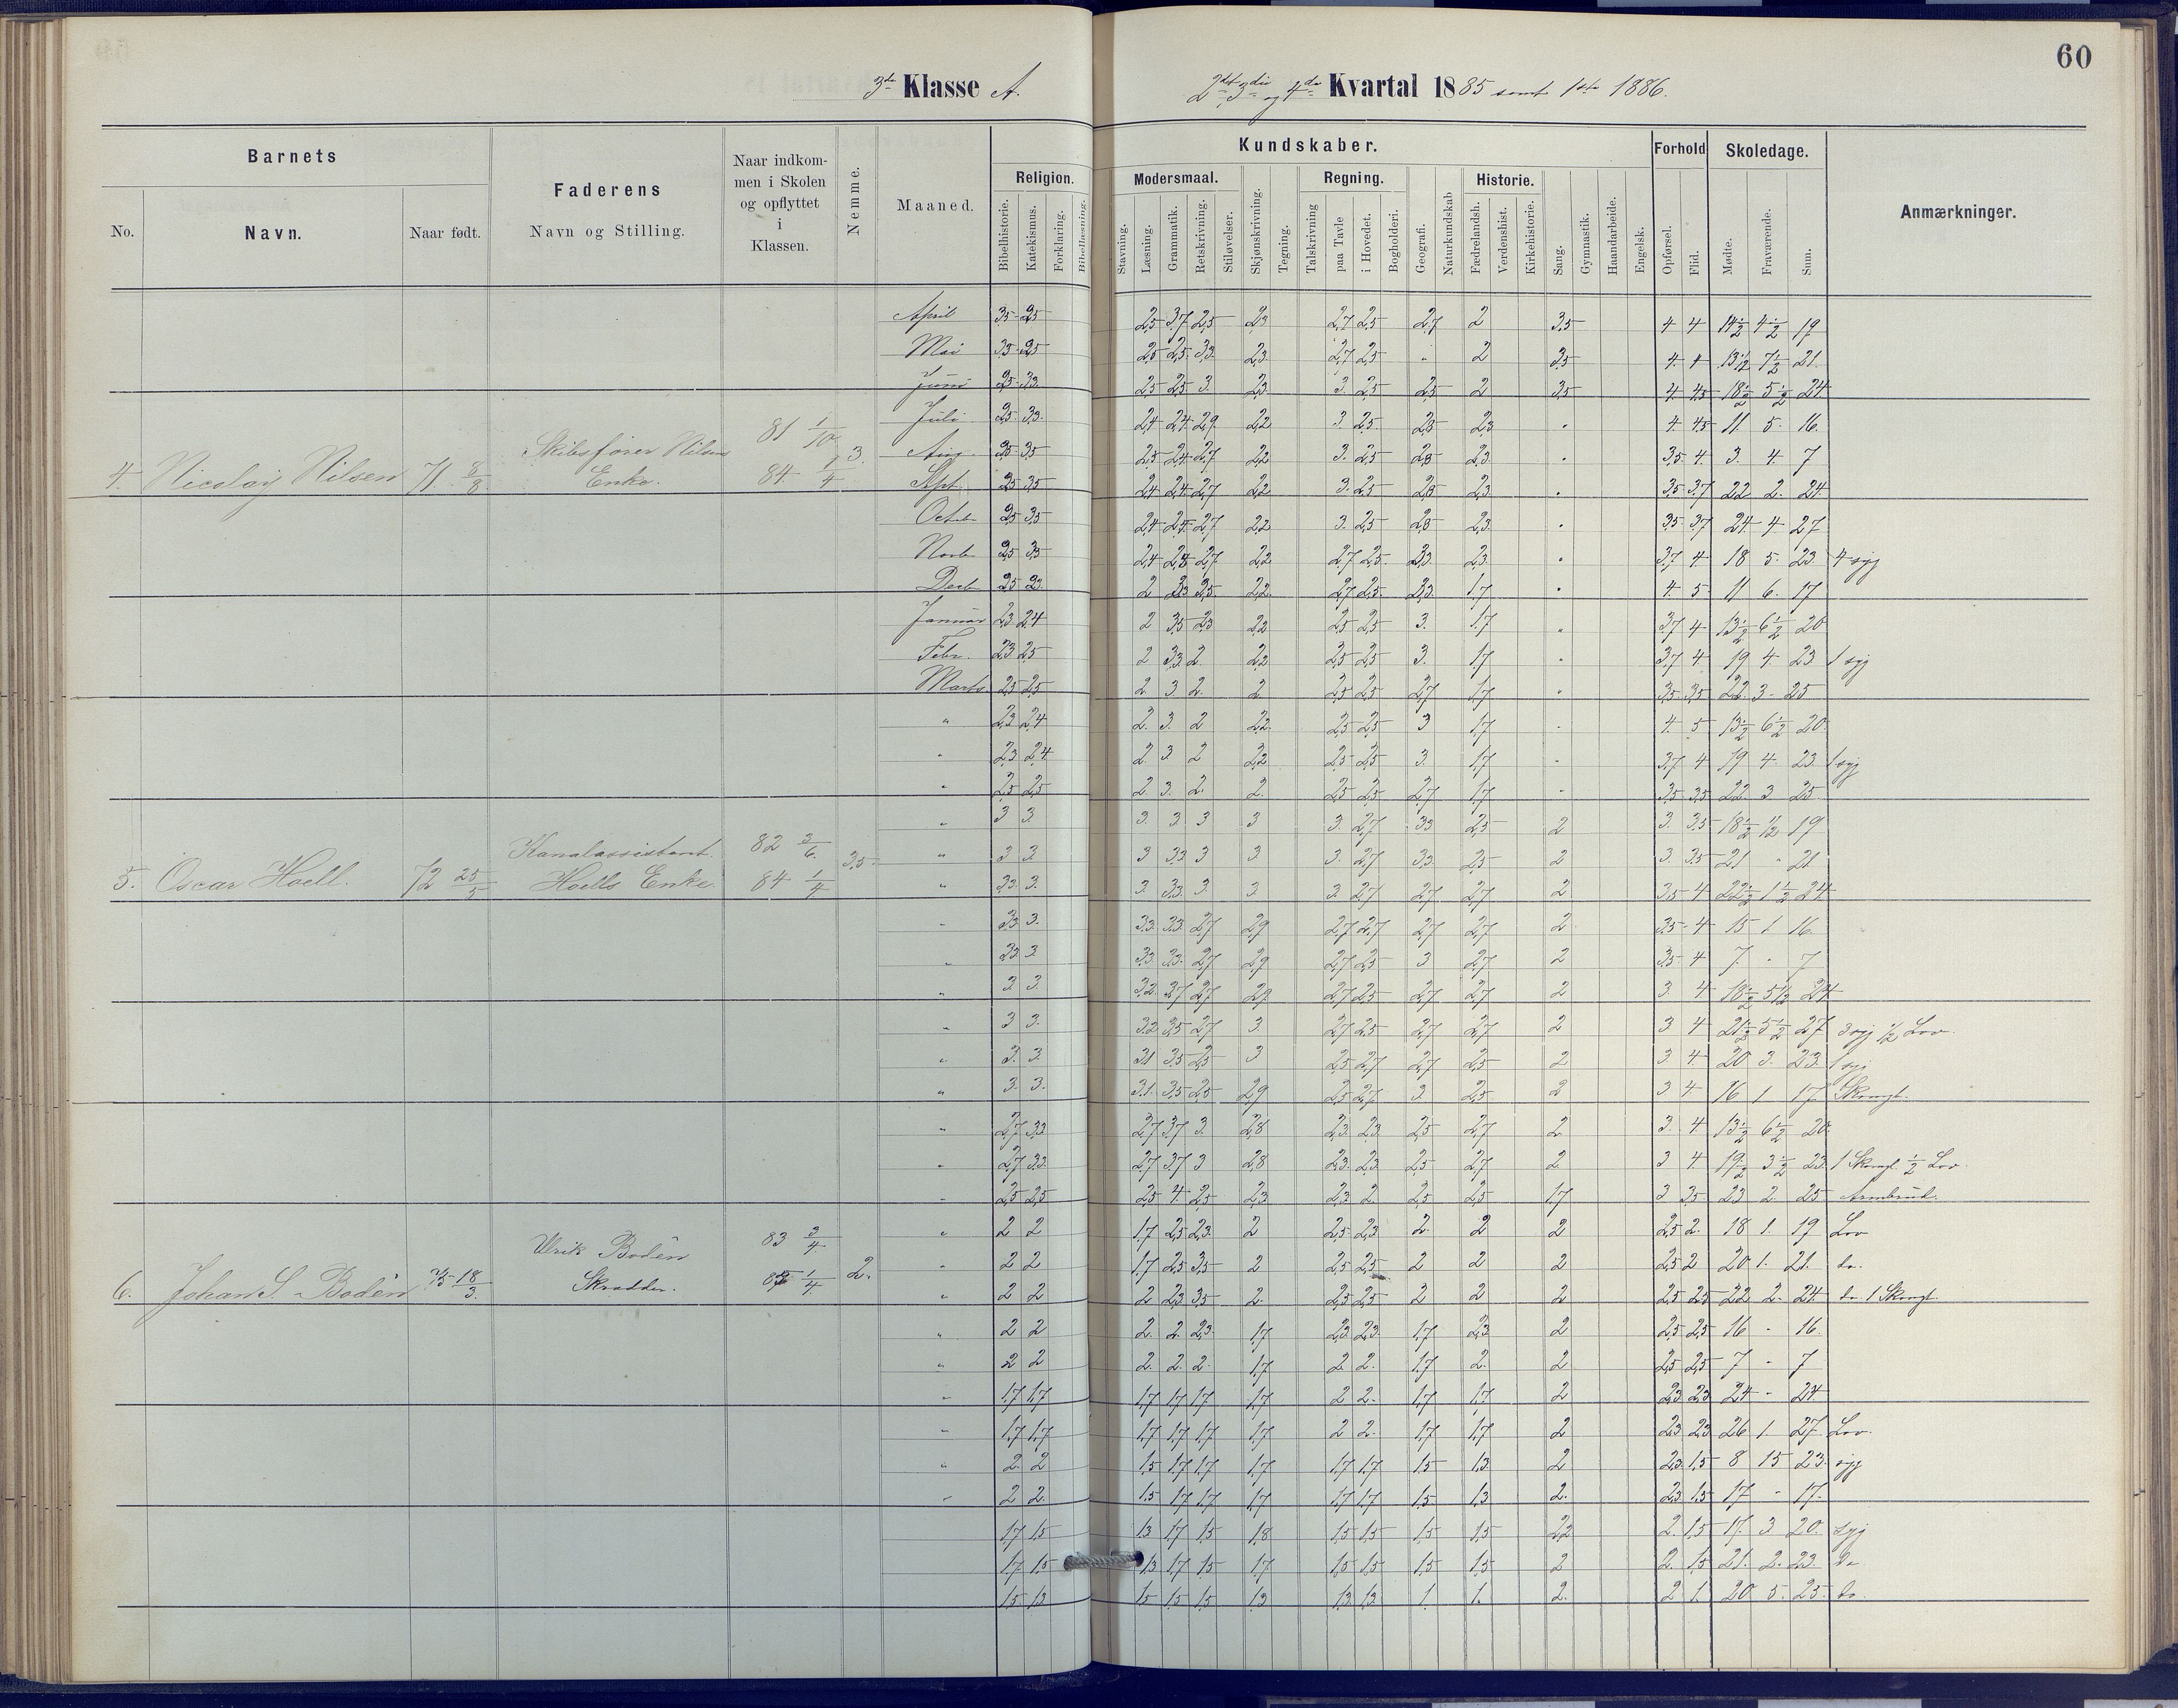 60
3die Klasse A.
2det 3die og 4de Kvartal 1885 samt 1ste 1886.
Barnets
No.
Navn.
Naar født.
Faderens
Navn og Stilling.
Naar indkom-
men i Skolen
og opflyttet
i
Klassen.
Nemme.
Maaned.
Kundskaber.
Religion.
Bibelhistorie.
Katekismus.
Forklaring.
Bibellæsning.
Modersmaal.
Stavning.
Læsning.
Grammatik.
Retskrivning.
Stiløvelser.
Skjønskrivning.
Tegning.
Regning.
Talskrivning
paa Tavle
i Hovedet.
Bogholderi.
Geografi.
Naturkundskab
Historie.
Fædrelandsh.
Verdenshist.
Kirkehistorie.
Sang.
Gymnastik.
Haandarbeide.
Engelsk.
Forhold
Opførsel.
Flid.
Skoledage.
Mødte.
Fraværende.
Sum.
Anmærkninger.
April 3,5 2,5 2,5 3,7 2,5 2,3 2,7 2,5 2,7 2 3,5 4 4 14½ 4½ 19
Mai 3,5 2,5 2,5 2,5 3,3 2,3 2,7 2,5 " 2 3,5 4 4 13½ 7½ 21
Juni 2,5 3,3 2,5 2,5 3. 2,3 3. 2,5 2,5 2 3,5 4 4,5 18½ 5½ 24
Juli 2,5 3,3 2,4 2,4 2,9 2,2 3. 2,5 2,3 2,3 " 4 4,5 11. 5. 16.
4. Nicolay Nilsen 71 8/8 Skibsfører Nilsens Enke. 81 1/10 84 1/4 3.
Aug. 3,5 3,5 2,5 2,4 2,7 2,2 3. 2,5 2,3 2,3 " 3,5 4. 3. 4. 7
Sept. 2,5 3,5 2,4 2,4 2,7 2,2 3. 2,5 2,3 2,3 " 3,5 3,7 22 2. 24
Octob. 2,5 3,5 2,4 2,4 2,7 2,2 3. 2,5 2,3 2,3 " 3,5 3,7 24 4 27
Novb. 2,5 3,5 2,4 2,4 2,7 2,2 2,7 2,5 3,3 2,3 " 3,7 4 18 5. 23 4 syg
Decb. 2,5 2,3 2 2,3 2,5 2,2 2,7 2,5 3,3 1,7 " 4. 5 11 6. 17
Januar 2,3 2,4 2 3,5 2,3 2,2 2,5 2,5 3. 1,7 " 3,7 4 13½ 6½ 20
Febr. 2,3 2,5 2 3,3 2. 2,2 2,5 2,5 3. 1,7 " 3,7 4 19 4 23 1 syg
Marts 2,5 2,5 2 3 2. 2 2,5 2,5 2,7 1,7 " 3,5 3,5 22 3 25
" 2,3 2,4 2. 3. 2 2,2 2,5 2,5 3 1,7 " 4. 5 13½ 6½ 20.
" 2,3 2,4 2. 3 2 2,2 2,5 2,5 3. 1,7 " 3,7 4 19 4 23 1 syg
" 2,5 2,5 2 3. 2. 2. 2,5 2,5 2,7 1,7 " 3,5 3,5 22 3 25
" 3 3. 3. 3 3 3 3. 2,7 3,3 2,5 2 3. 3,5 18½ ½ 19
5. Oscar Hoell. 72 25/5 Kanalassistent Hoells Enke. 82 3/6. 84 1/4 3,5
" 3 3. 3 3,3 3 3 3. 2,7 3,3 2,5 2 3. 3,5 21 " 21
" 3,3 3. 3. 3,3 3. 3. 3. 2,7 2,7 2,7 2 3,5 4 22½ 1½ 24
" 3,3 3. 3,3 3,3 2,7 2,9 2,7 2,7 2,7 2,7 2 3,5 4 15 1 16.
" 3,3 3. 3,3 3,3 2,7 2,9 2,7 2,5 3 2,7 2 3,5 4 7 " 7
" 3 3. 3,2 3,7 2,7 2,9 2,7 2,5 2,7 2,7 2 3. 4 18½ 5½ 24
" 3 3. 3,2 3,5 2,7 3. 2,7 2,5 2,7 2,7 2 3 4 21½ 5½ 27 3 syg ½ Lov.
" 3. 3. 3,1 3,5 2,5 3 2,5 2,7 2,7 2,5 2 3 4. 20 3. 23 1 syg
" 3. 3. 3,1 3,5 2,5 2,9 2,5 2,7 3. 2,5 2 3 4. 16 1 17 Skrngt.
" 2,7 3,3 2,7 3,7 3. 2,8 2,3 2,3 2,5 2,7 2 3. 4 13½ 6½ 20.
" 2,7 3,3 2,7 3,7 3 2,8 2,3 2,3 2,5 2,7 2 3 4 19½ 3½ 23 1 Skrngt. ½ Lov.
" 2,5 2,5 2,5 4 2,5 2,3 2,3 2 2,5 2,5 1,7 3 3,5 23 2 25 Armbrud.
" 2 2 1,7 2,5 2,3 2 2,5 2,3 2. 2 2 2,5 2. 18 1. 19 Lov
6. Johan S. Bodèn 75 18/3. Ulrik Bodèn Skrædder. 83 3/4. 85 1/4. 2.
" 2 2 1,7 2,5 3,5 2 2,5 2,5 2 2 2 2,5 2 20 1. 21. do.
" 2 2 2 2,3 3,5 2. 2,5 2,5 2 2 2 2,5 2,5 22 2. 24 do 1 Skrngt.
" 2 2 2. 2. 2,3 1,7 2,3 2,3 1,7 2,3 2 2,5 2,5 16 - 16.
" 2 2 2. 2. 2. 1,7 2 2. 1,7 2. 2 2,5 2,5 7 - 7
" 1,7 1,7 1,7 1,7 1,7 1,7 2 2. 1,7 1,7 2 2,3 2,3 24 - 24
" 1,7 1,7 1,7 1,7 1,7 1,7 2 2. 1,7 1,7 2 2,3 2,3 26 1. 27 Lov.
" 2. 2 1,5 1,7 1,7 1,7 1,7 1,7 1,5 1,3 2 2,3 1,5 8 15 23 syg
" 2 2. 1,5 1,7 1,7 1,7 1,7 1,7 1,5 1,3 2. 2,3 1,5 17 - 17.
1,7 1,5 1,3 1,7 1,5 1,8 1,5 1,5 1,5 1,5 2,2 2. 1,5 17. 3. 20. syg
1,7 1,5 1,3 1,7 1,5 1,7 1,5 1,5 1,5 1,5 2 2. 1,5 21. 2. 23. Do
1,5 1,3 1,5 1,5 1,5 1,3 1,3 1,3 1. 1. 2. 2 1. 20 5. 25. do.